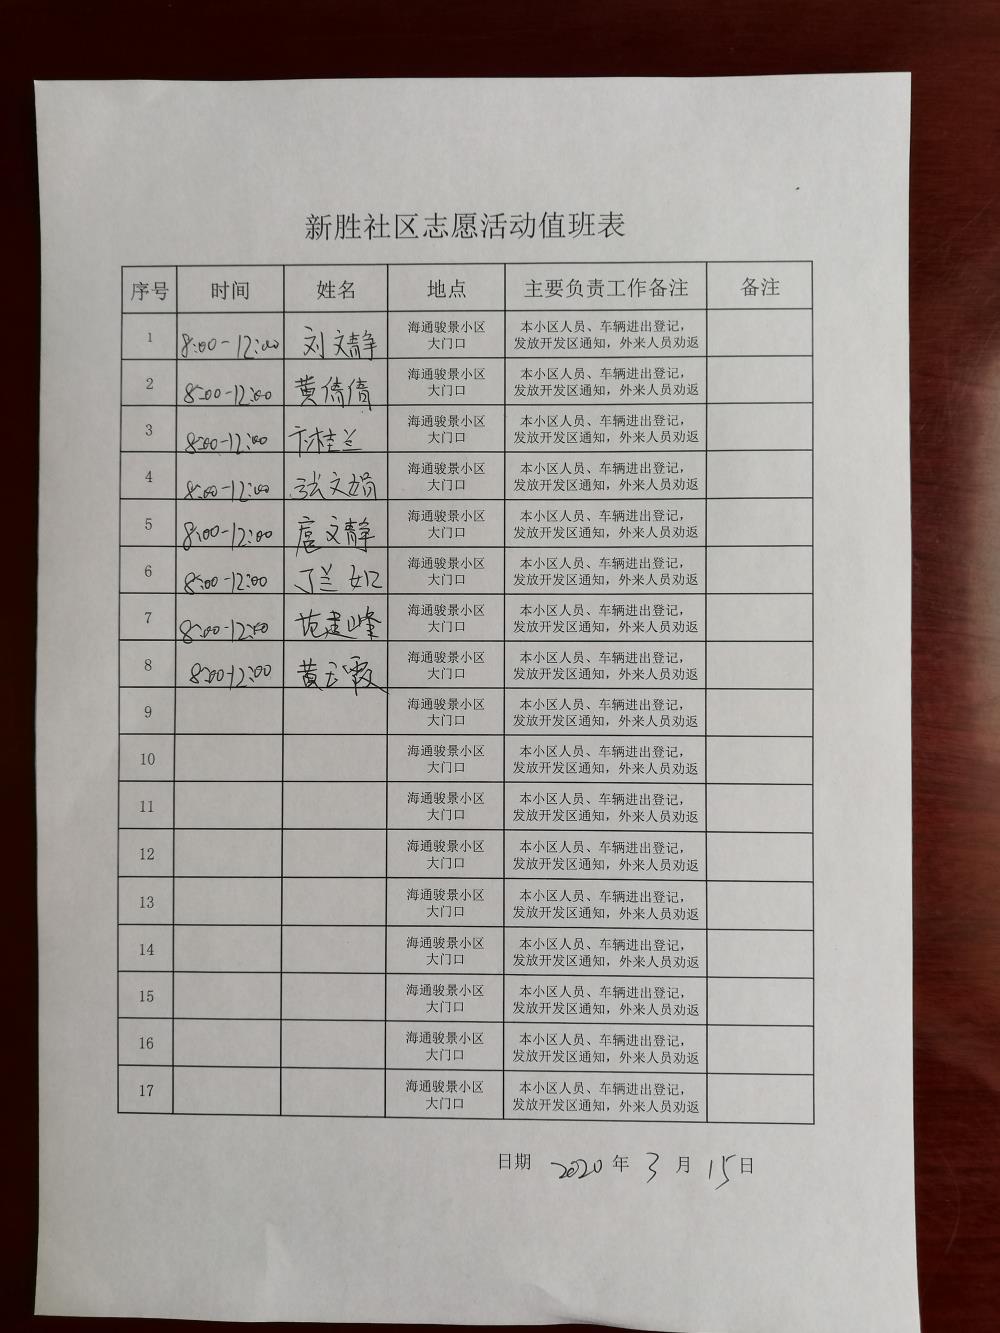 新胜社区志愿活动值班表
序号 时间 姓名 地点 主要负责工作备注 备注
1 8:00-12:00 刘文静 海通骏景小区 本小区人员、车辆进出登记，
大门口 发放开发区通知，外来人员劝返
2 8:00-12:00 黄倩倩 海通骏景小区 本小区人员、车辆进出登记，
大门口 发放开发区通知，外来人员劝返
3 8:00-12:00 卞桂兰 海通骏景小区 本小区人员、车辆进出登记，
大门口 发放开发区通知，外来人员劝返
4 8:00-12:00 张文娟 海通骏景小区 本小区人员、车辆进出登记，
大门口 发放开发区通知，外来人员劝返
5 8:00-12:00 海通骏景小区 本小区人员、车辆进出登记，
大门口 发放开发区通知，外来人员劝返
6 8:00-12:00 丁兰如 海通骏景小区 本小区人员、车辆进出登记，
大门口 发放开发区通知，外来人员劝返
7 8:00-12:00 范建峰 海通骏景小区 本小区人员、车辆进出登记，
大门口 发放开发区通知，外来人员劝返
8 8:00-12:00 黄玉霞 海通骏景小区 本小区人员、车辆进出登记，
大门口 发放开发区通知，外来人员劝返
9 海通骏景小区 本小区人员、车辆进出登记，
大门口 发放开发区通知，外来人员劝返
10 海通骏景小区 本小区人员、车辆进出登记，
大门口 发放开发区通知，外来人员劝返
11 海通骏景小区 本小区人员、车辆进出登记，
大门口 发放开发区通知，外来人员劝返
12 海通骏景小区 本小区人员、车辆进出登记，
大门口 发放开发区通知，外来人员劝返
13 海通骏景小区 本小区人员、车辆进出登记，
大门口 发放开发区通知，外来人员劝返
14 海通骏景小区 本小区人员、车辆进出登记，
大门口 发放开发区通知，外来人员劝返
15 海通骏景小区 本小区人员、车辆进出登记，
大门口 发放开发区通知，外来人员劝返
16 海通骏景小区 本小区人员、车辆进出登记，
大门口 发放开发区通知，外来人员劝返
17 海通骏景小区 本小区人员、车辆进出登记，
大门口 发放开发区通知，外来人员劝返
日期 2020 年 3 月 15 日